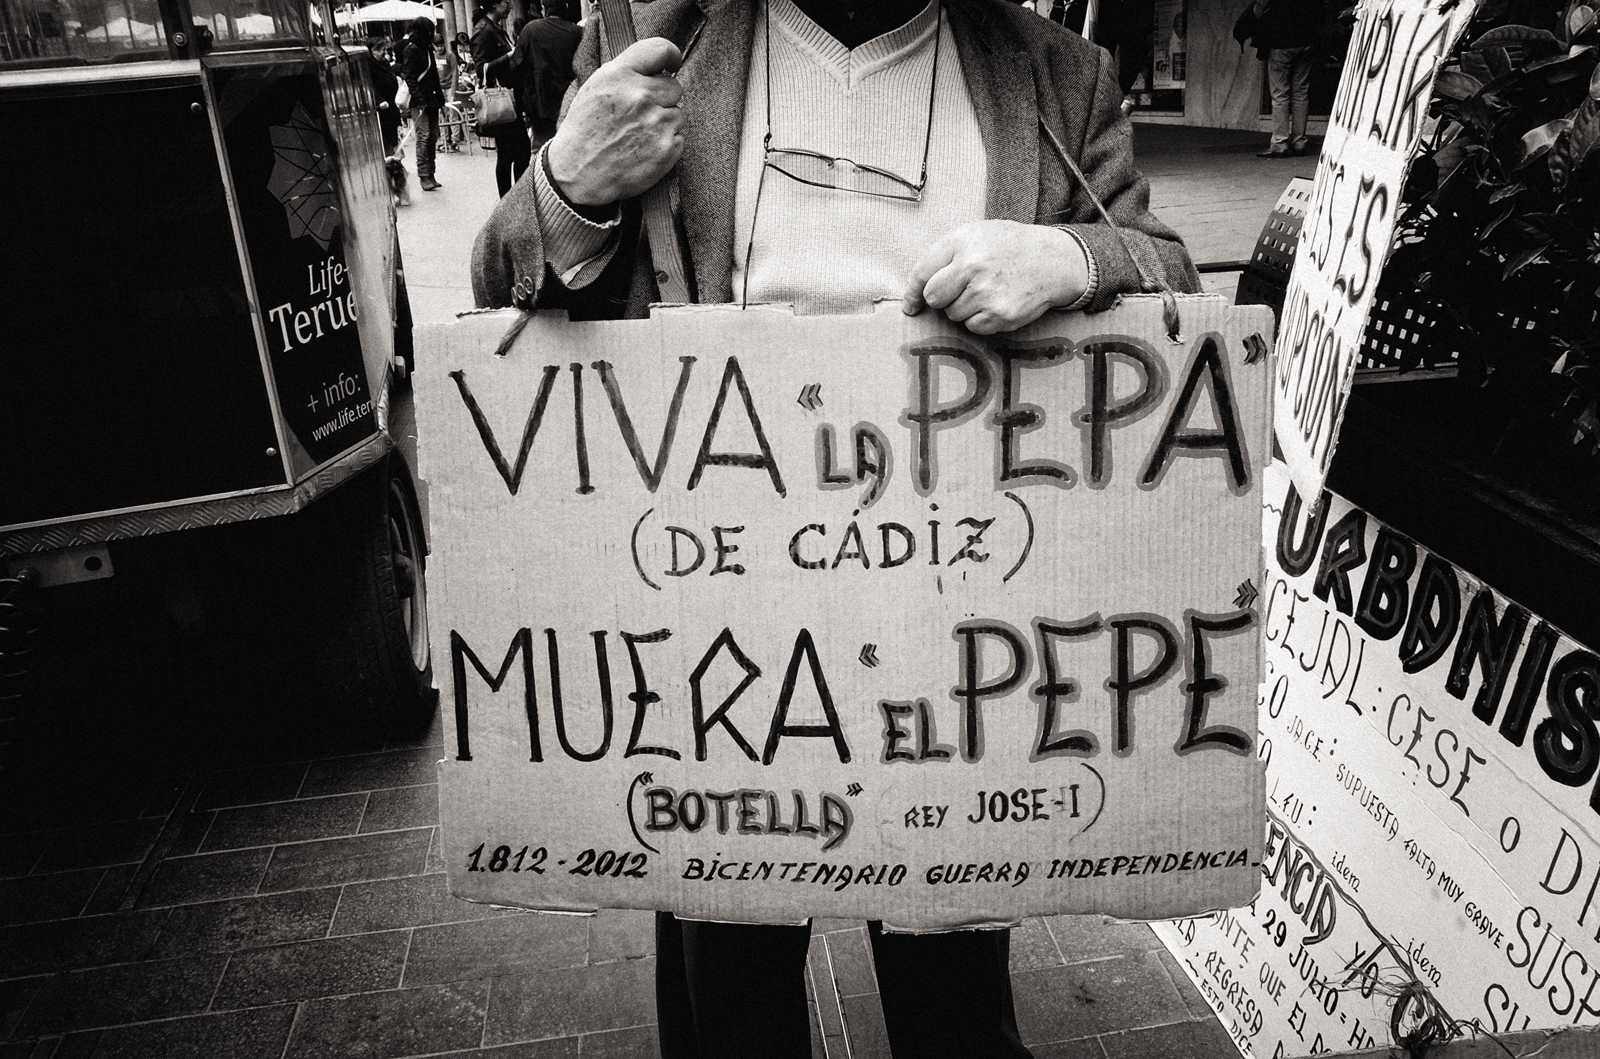 Life
Teruel
+ info:
www.life.ter
VIVA «LA PEPA»
(DE CÁDIZ)
MUERA «EL PEPE»
("BOTELLA" REY JOSE-I)
1.812 - 2012 BICENTENARIO GUERRA INDEPENDENCIA-
URBANIS
CEJAL: CESE O DI
JACE: SUPUESTA FALTA MUY GRAVE SUSP
idem
ENCIA Y/O idem
29 JULIO = HA
ANTE QUE EL
REGRESA
ESTO DICE